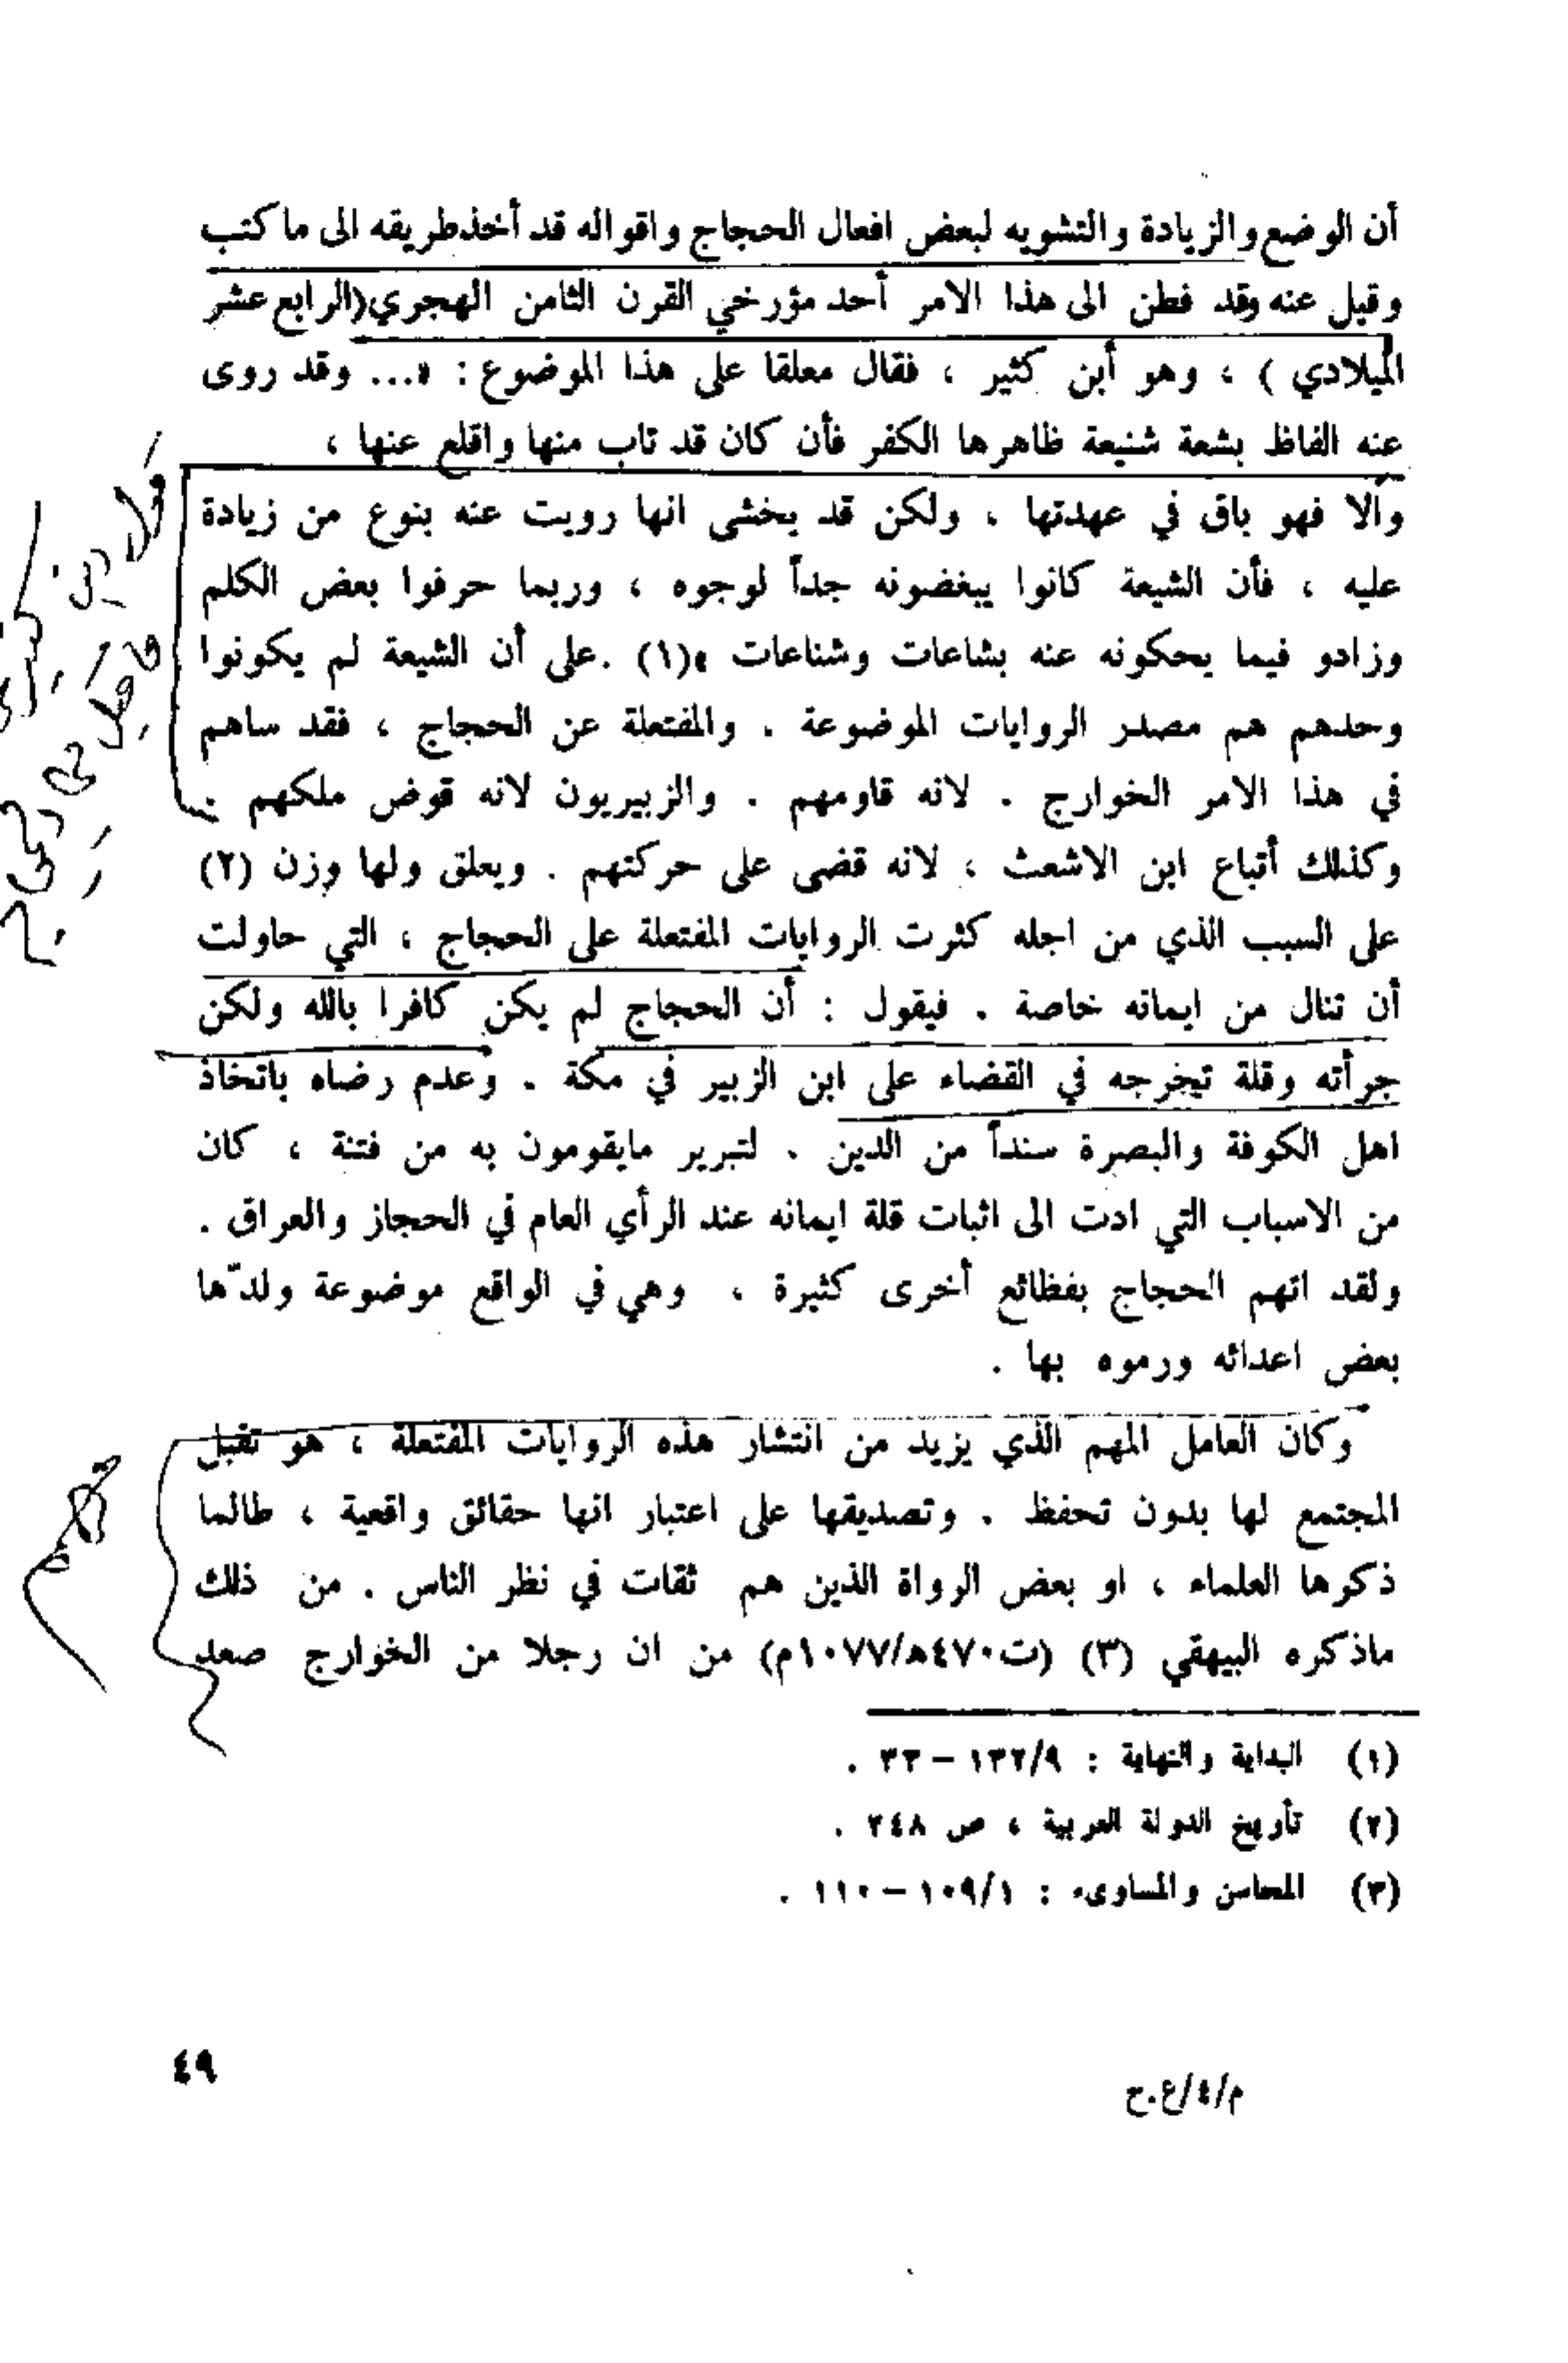 أن الوضع والزيادة والتشويه لبعض افعال الحجاج واقواله قد أخذ طريقه الى ما كتب
وقيل عنه وقد فطن الى هذا الامر أحد مؤرخي القرن الثامن الهجري (الرابع عشر
الميلادي ) ، وهو أبن كثير ، فقال معلقا على هذا الموضوع : «... وقد روى
عنه الفاظ بشعة شنيعة ظاهرها الكفر فأن كان قد تاب منها واقلع عنها ،
وألا فهو باق في عهدتها ، ولكن قد يخشى انها رويت عنه بنوع من زيادة
عليه ، فأن الشيعة كانوا يبغضونه جداً لوجوه ، وربما حرفوا بعض الكلم
وزادو فيما يحكونه عنه بشاعات وشناعات »(١) .على أن الشيعة لم يكونوا
وحدهم هم مصدر الروايات الموضوعة . والمفتعلة عن الحجاج ، فقد ساهم
في هذا الامر الخوارج . لانه قاومهم . والزبيريون لانه قوض ملكهم .
وكذلك أتباع ابن الاشعث ، لانه قضى على حركتهم . ويعلق ولها وزن (٢)
على السبب الذي من اجله كثرت الروايات المفتعلة على الحجاج ، التي حاولت
أن تنال من ايمانه خاصة . فيقول : أن الحجاج لم يكن كافرا بالله ولكن
جرأته وقلة تيخرجه في القضاء على ابن الزبير في مكة . وعدم رضاه باتخاذ
اهل الكوفة والبصرة سنداً من الدين . لتبرير مايقومون به من فتنة ، كان
من الاسباب التي ادت الى اثبات قلة ايمانه عند الرأي العام في الحجاز والعراق .
ولقد اتهم الحجاج بفظائع أخرى كثيرة ، وهي في الواقع موضوعة ولدّها
بعض اعدائه ورموه بها .
وكان العامل المهم الذي يزيد من انتشار هذه الروايات المفتعلة ، هو تقبل
المجتمع لها بدون تحفظ . وتصديقها على اعتبار انها حقائق واقعية ، طالما
ذكرها العلماء ، او بعض الرواة الذين هم ثقات في نظر الناس . من ذلك
ماذكره البيهقي (٣) (ت٤٧٠ه/١٠٧٧م) من ان رجلا من الخوارج صعد
(١) البداية والنهاية : ١٣٢/٩ – ٣٣ .
(٢) تأريخ الدولة العربية ، ص ٢٤٨ .
(٣) المحاسن والمساوىء : ١٠٩/١ – ١١٠ .
٤٩
م/٤/ع.ح